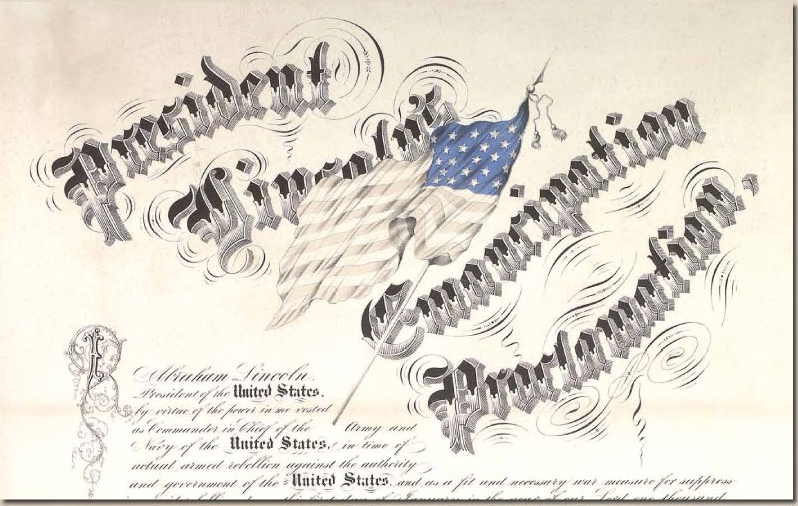 President
Lincoln's
Emancipation
Proclamation,
I
Abraham Lincoln,
President of the United States,
by virtue of the power in me vested
as Commander in Chief of the Army and
Navy of the United States, in time of
actual armed rebellion against the authority
and government of the United States, and as a fit and necessary war measure for suppress-
this first day of January in the year of our Lord one thousand